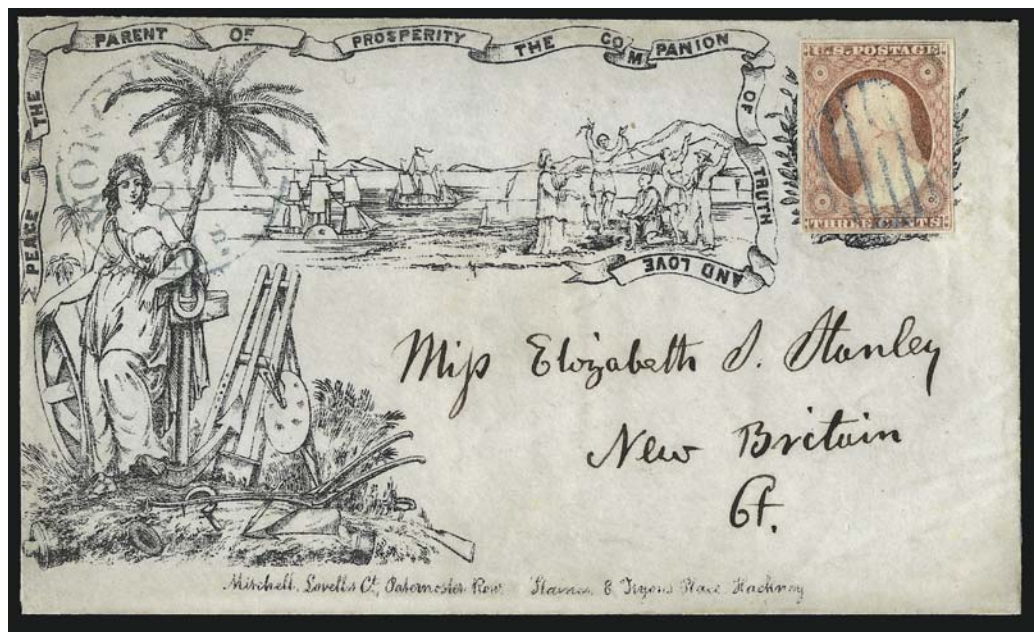 PEACE THE PARENT OF PROSPERITY THE COMPANION OF TRUTH AND LOVE
U.S. POSTAGE
THREE CENTS
Miss Elizabeth S. Stanley
New Britain
Ct.
Mitchell, Lovells Ct, Paternoster Row. 8, Tryons Place Hackney